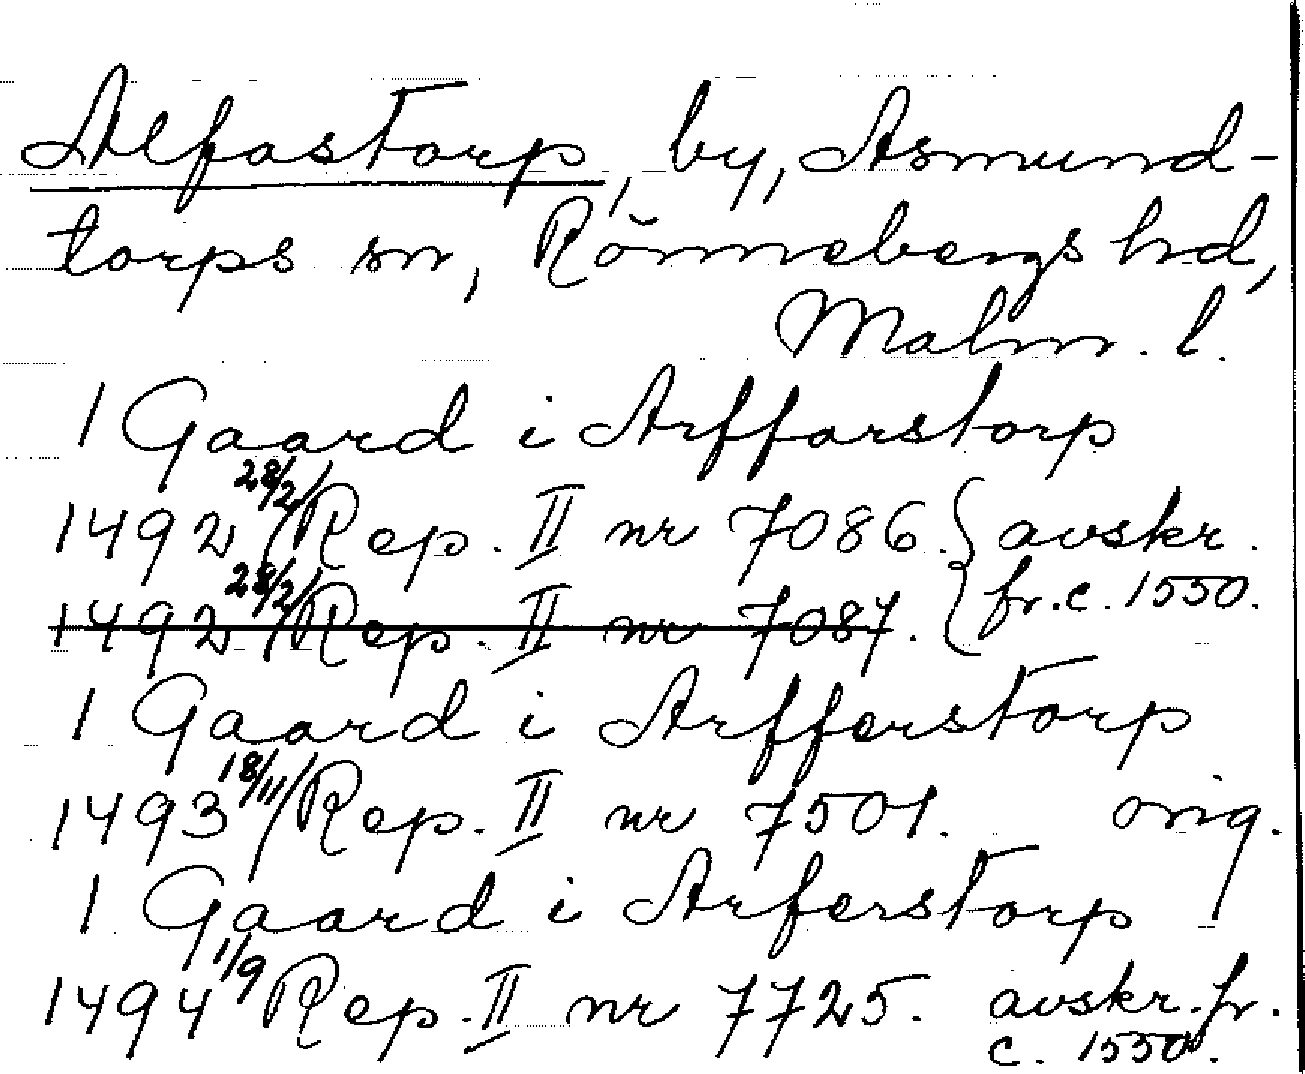 Alfastorp, by, Asmund-
torps sn, Rönnebergs hd,
Malm. l.
1 Gaard i Arffarstorp
1492 28/2 / Rep. II nr 7086. } avskr.
1492 28/2 / Rep. II nr 7087. } fr. c. 1550.
1 Gaard i Arfferstorp
1493 18/11 / Rep. II nr 7501. orig.
1 Gaard i Arferstorp
1494 1/9 Rep. II nr 7725. avskr. fr.
c. 1550.